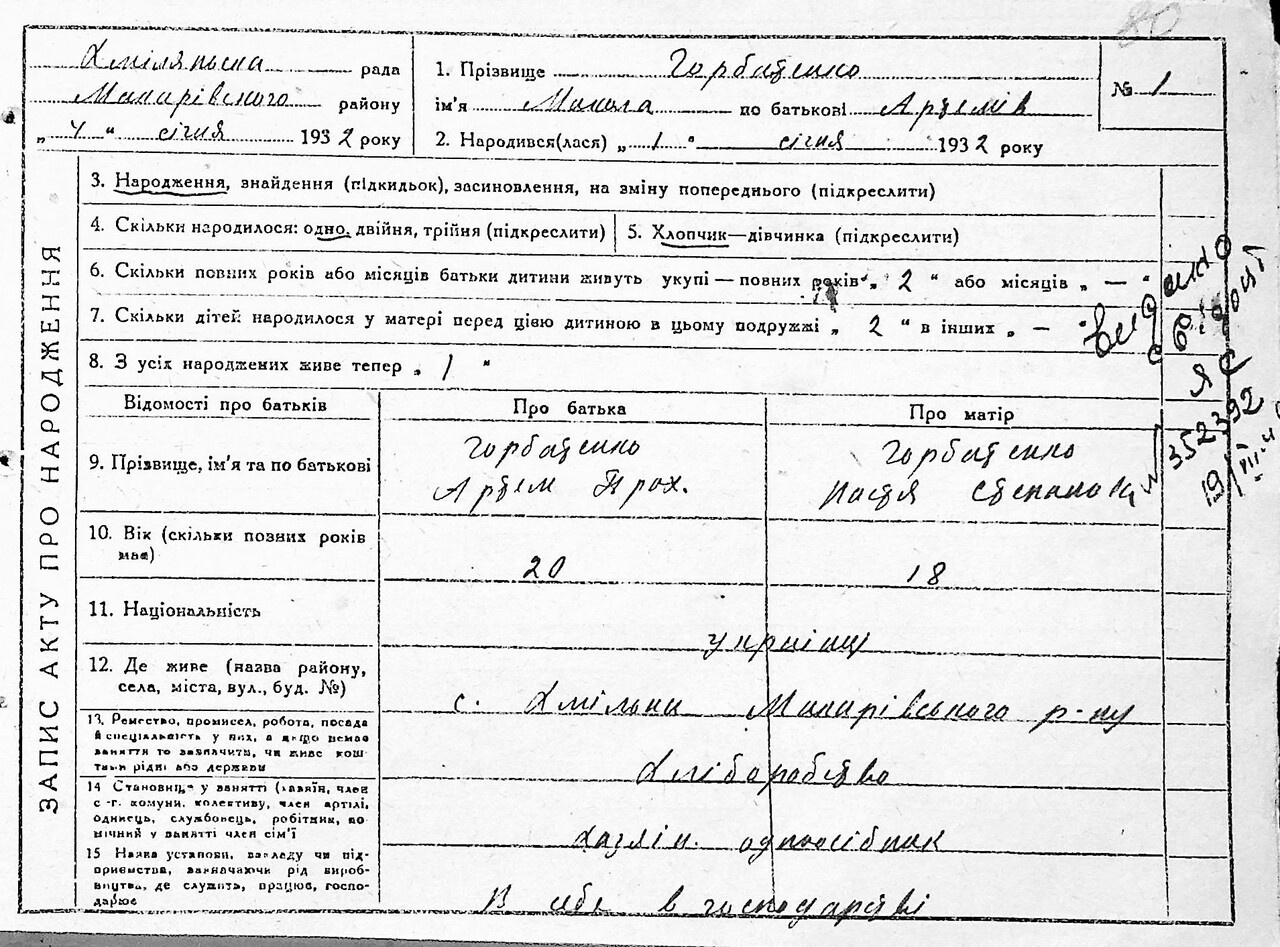 80
Хмілянська рада
Макарівського району
„ 4 “ січня 1932 року
1. Прізвище Горбатенко
ім'я Микола по батькові Артемів
2. Народився(лася) „ 1 “ січня 1932 року
№ 1
ЗАПИС АКТУ ПРО НАРОДЖЕННЯ
3. Народження, знайдення (підкидьок), засиновлення, на зміну попереднього (підкреслити)
4. Скільки народилося: одно, двійня, трійня (підкреслити)
5. Хлопчик—дівчинка (підкреслити)
6. Скільки повних років або місяців батьки дитини живуть укупі — повних років „ 2 “ або місяців „ — “
7. Скільки дітей народилося у матері перед цією дитиною в цьому подружжі „ 2 “ в інших „ —
8. З усіх народжених живе тепер „ 1 “
Відомості про батьків
Про батька
Про матір
9. Прізвище, ім'я та по батькові
Горбатенко
Артем Прох.
Горбатенко
Настя Степанов
10. Вік (скільки повних років
має)
20
18
11. Національність
українці
12. Де живе (назва району,
села, міста, вул., буд. №)
с. Хмільна Макарівського р-ну
13. Ремество, промисел, робота, посада
й спеціальність у них, а якщо немає
заняття то зазначити, чи живе кош-
тами рідні або держави
Хліборобство
14 Становище у занятті (хазяїн, член
с.-г. комуни, колективу, член артілі,
одинець, службовець, робітник, по
мічний у занятті член сім'ї
Хазяін. одноосібник
15 Назва установи, закладу чи під-
приємства, зазначаючи рід вироб-
ництва, де служить, працює, госпо-
дарює
В себе в господарстві
видано
ЯС
352392
19/III